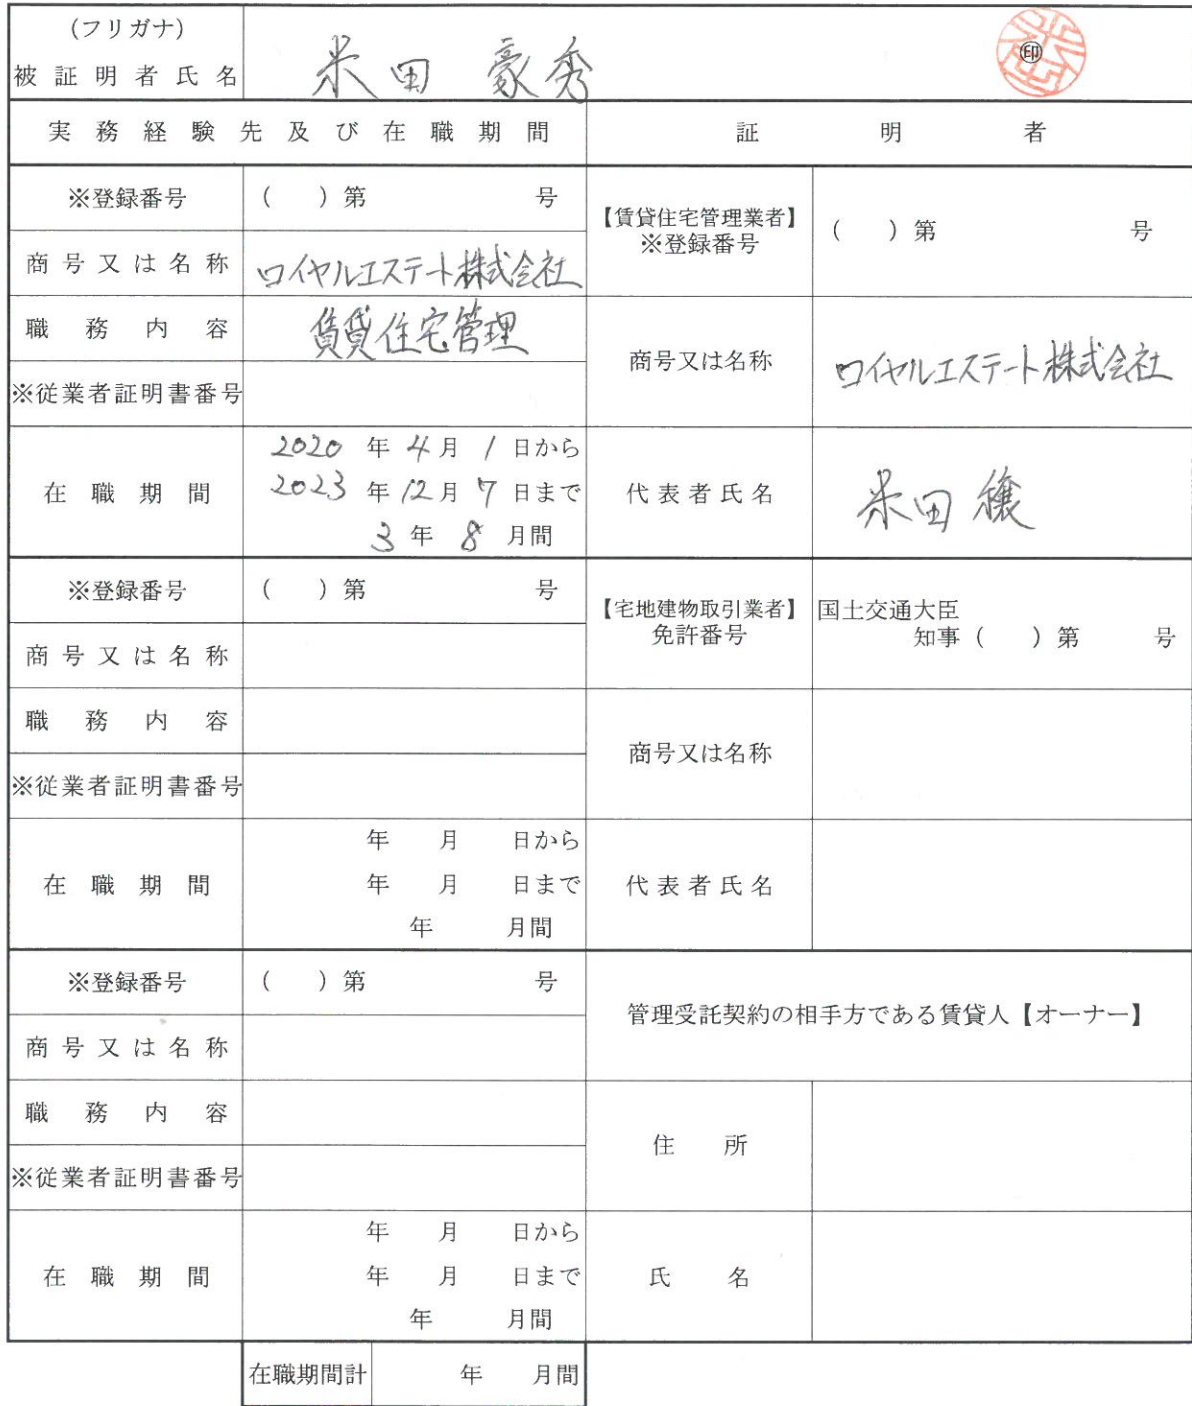 (フリガナ)
被証明者氏名 米田 豪秀 ㊞
実務経験先及び在職期間 証明者
※登録番号 ( ) 第 号
商号又は名称 ロイヤルエステート株式会社
職務内容 賃貸住宅管理
※従業者証明書番号
在職期間 2020 年 4 月 1 日から
2023 年 12 月 7 日まで
3 年 8 月間
【賃貸住宅管理業者】
※登録番号 ( ) 第 号
商号又は名称 ロイヤルエステート株式会社
代表者氏名 米田 穣
※登録番号 ( ) 第 号
商号又は名称
職務内容
※従業者証明書番号
在職期間 年 月 日から
年 月 日まで
年 月間
【宅地建物取引業者】 国土交通大臣
免許番号 知事 ( ) 第 号
商号又は名称
代表者氏名
※登録番号 ( ) 第 号
商号又は名称
職務内容
※従業者証明書番号
在職期間 年 月 日から
年 月 日まで
年 月間
管理受託契約の相手方である賃貸人【オーナー】
住所
氏名
在職期間計 年 月間